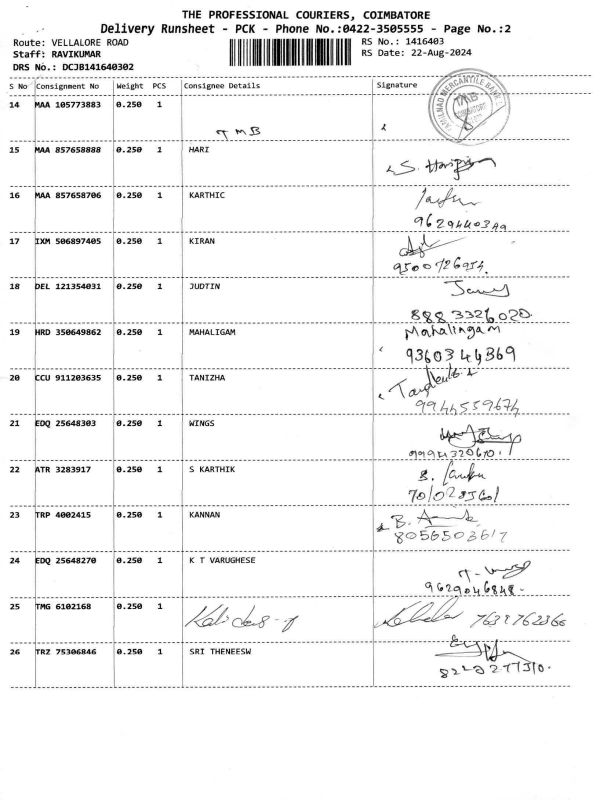 THE PROFESSIONAL COURIERS, COIMBATORE
Delivery Runsheet - PCK - Phone No.:0422-3505555 - Page No.:2
Route: VELLALORE ROAD RS No.: 1416403
Staff: RAVIKUMAR RS Date: 22-Aug-2024
DRS No.: DCJB141640302
S No Consignment No Weight PCS Consignee Details Signature
14 MAA 105773883 0.250 1
TMB
TAMILNAD MERCANTILE BANK
TMB
15 MAA 857658888 0.250 1 HARI
16 MAA 857658706 0.250 1 KARTHIC
17 IXM 506897405 0.250 1 KIRAN
9500726954.
18 DEL 121354031 0.250 1 JUDTIN
888 3326020.
19 HRD 350649862 0.250 1 MAHALIGAM Mahalingam
9360344369
20 CCU 911203635 0.250 1 TANIZHA
9944559674
21 EDQ 25648303 0.250 1 WINGS
9994320610.
22 ATR 3283917 0.250 1 S KARTHIK
23 TRP 4002415 0.250 1 KANNAN
8056503617
24 EDQ 25648270 0.250 1 K T VARUGHESE
9629046848.
25 TMG 6102168 0.250 1
26 TRZ 75306846 0.250 1 SRI THENEESW